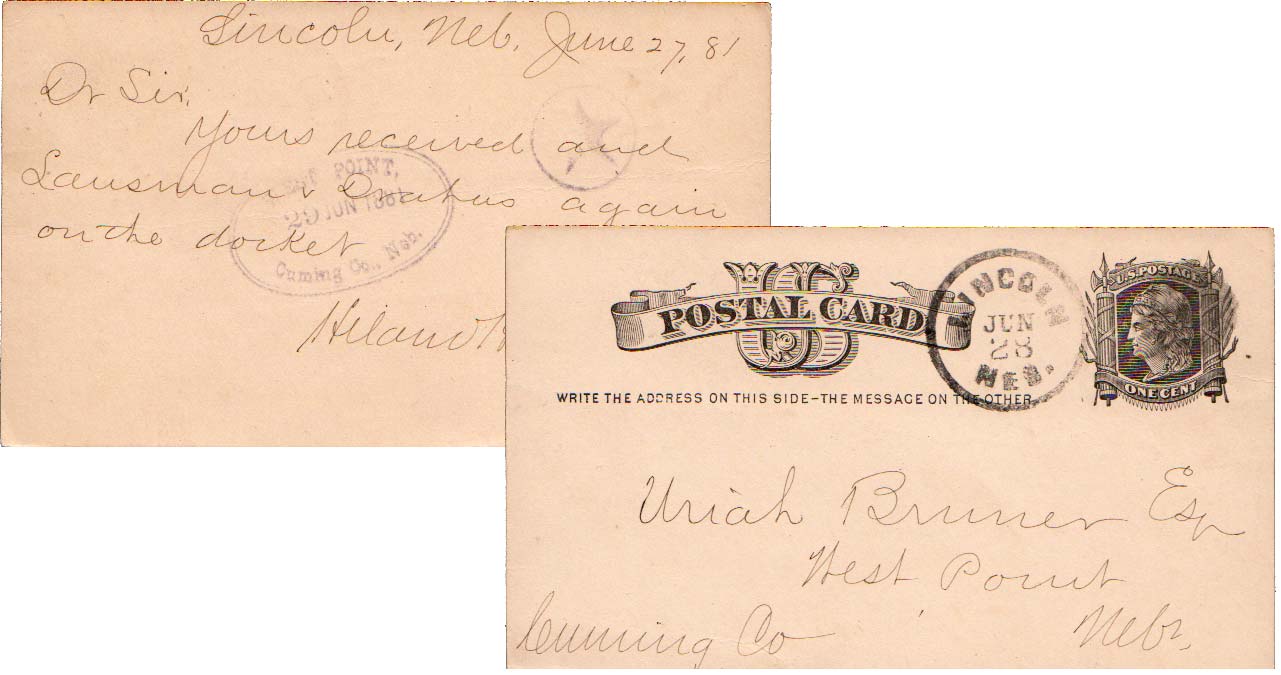 Lincoln, Neb. June 27, 81
Dr Sir,
Yours received and
Lausman & again
on the docket
Hiland
WEST POINT,
29 JUN 1881
Cuming Co., Neb.
US
POSTAL CARD
NO
WRITE THE ADDRESS ON THIS SIDE-THE MESSAGE ON THE OTHER
LINCOLN
JUN
28
NEB.
U.S. POSTAGE
ONE CENT
Uriah Bruner Esq
West Point
Cuming Co Nebr.